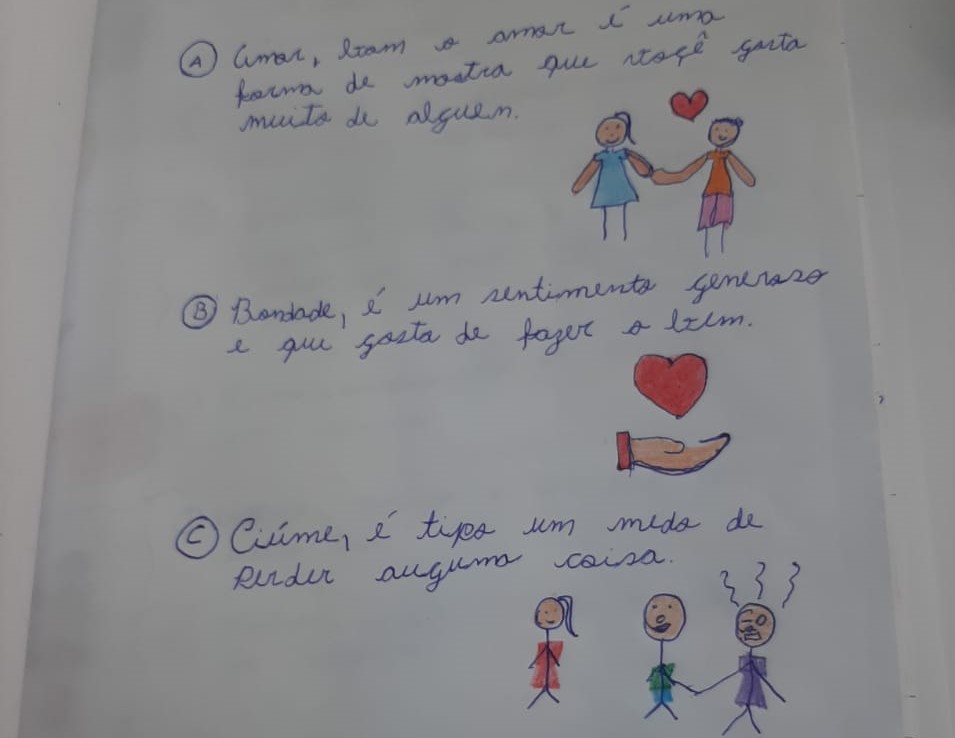 A Amor, bom o amor é uma
forma de mostra que você gosta
muito de alguem.
B Bondade, é um sentimento generoso
e que gosta de fazer o bem.
C Ciúme, é tipo um medo de
Perder auguma coisa.